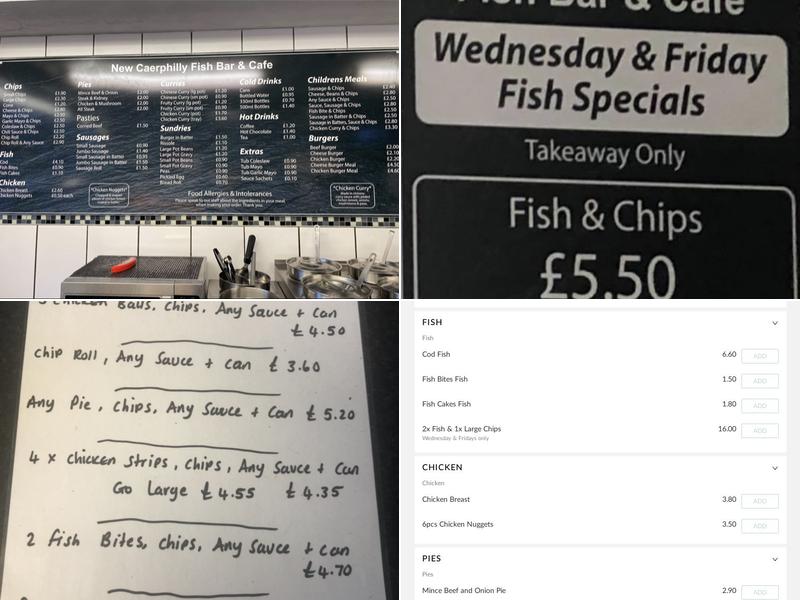 New Caerphilly Fish Bar & Cafe
Chips
Small Chips £1.90
Large Chips £2.30
Cone £1.20
Cheese & Chips
Mayo & Chips
Garlic Mayo & Chips
Coleslaw & Chips
Chili Sauce & Chips
Chip Roll £2.20
Chip Roll & Any Sauce £2.90
Fish
Cod £4.10
Fish Bites £0.90
Fish Cakes
Chicken
Chicken Breast £2.60
Chicken Nuggets
Pies
Mince Beef & Onion
Chicken & Mushroom
All Steak
Pasties
Corned Beef £1.50
Sausages
Small Sausage £0.90
Jumbo Sausage £1.40
Small Sausage in Batter £0.95
Jumbo Sausage in Batter £1.50
Sausage Roll
*Chicken Nuggets*
Curries
Chinese Curry (lg pot)
Chinese Curry (sm pot)
Fruity Curry (lg pot) £1.20
Fruity Curry (sm pot) £0.90
Chicken Curry (pot) £1.70
Chicken Curry (tray)
Sundries
Burger in Batter £1.50
Rissole
Large Pot Beans
Large Pot Gravy
Small Pot Beans £0.90
Small Pot Gravy £0.90
Peas £0.90
Pickled Egg £0.60
Bread Roll
Food Allergies & Intolerances
Please speak to our staff about the ingredients in your meal
when making your order. Thank you.
Cold Drinks
Cans £1.00
Bottled Water £0.95
330ml Bottles £0.70
500ml Bottles £1.40
Hot Drinks
Coffee £1.20
Hot Chocolate £1.40
Tea £1.00
Extras
Tub Coleslaw £0.90
Tub Mayo £0.90
Tub Garlic Mayo £0.90
Sauce Sachets £0.10
Childrens Meals
Sausage & Chips
Cheese, Beans & Chips
Any Sauce & Chips
Sauce, Sausage & Chips
Fish Bite & Chips
Sausage in Batter & Chips
Sausage in Batter, Sauce & Chips
Chicken Curry & Chips £3.30
Burgers
Beef Burger
Cheese Burger
Chicken Burger
Cheese Burger Meal
Chicken Burger Meal
*Chicken Curry*
Fish Bar & Cafe
Wednesday & Friday
Fish Specials
Takeaway Only
Fish & Chips
£5.50
Chicken Balls, Chips, Any Sauce + Can
£4.50
Chip Roll, Any Sauce + Can £3.60
Any Pie, Chips, Any Sauce + Can £5.20
4 x Chicken Strips, Chips, Any Sauce + Can
Go Large £4.55 £4.35
2 Fish Bites, Chips, Any Sauce + Can
£4.70
FISH
Fish
Cod Fish 6.60 ADD
Fish Bites Fish 1.50 ADD
Fish Cakes Fish 1.80 ADD
2x Fish & 1x Large Chips 16.00 ADD
Wednesday & Fridays only
CHICKEN
Chicken
Chicken Breast 3.80 ADD
6pcs Chicken Nuggets 3.50 ADD
PIES
Pies
Mince Beef and Onion Pie 2.90 ADD